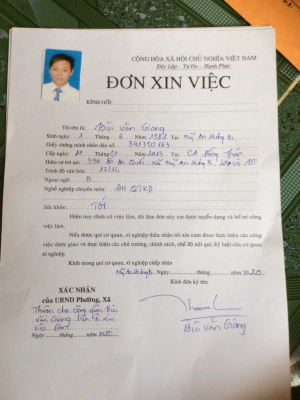 CỘNG HÒA XÃ HỘI CHỦ NGHĨA VIỆT NAM
Độc Lập - Tự Do - Hạnh Phúc
ĐƠN XIN VIỆC
KÍNH GỞI:
Tôi tên là: Bùi Văn Giang
Sinh ngày 1 Tháng 6 Năm Tại Mỹ An Hưng B
Giấy chứng minh nhân dân số:
Cấp ngày Tháng 01 Năm 2013 Tại CA Đồng Tháp
Hiện cư trú tại: An Mỹ An Hưng B, ĐT
Trình độ văn hóa: 12/12
Ngoại ngữ: B
Nghề nghiệp chuyên môn: ĐH QTKD
Sức khỏe: Tốt
Hiện nay chưa có việc làm, tôi làm đơn này xin được tuyển dụng và bố trí công
việc làm.
Nếu được quí cơ quan, xí nghiệp thâu nhận tôi xin cam đoan thực hiện các công
việc được giao và thực hiện các chủ trương, chính sách, chế độ nội qui, kỷ luật của cơ quan
xí nghiệp.
Kính mong quí cơ quan, xí nghiệp chấp nhận
Mỹ An Hưng B, Ngày tháng năm 2020
Kính đơn ký tên
XÁC NHẬN
của UBND Phường, Xã
Bùi
Văn Giang
Ngày tháng năm 2020
Bùi Văn Giang